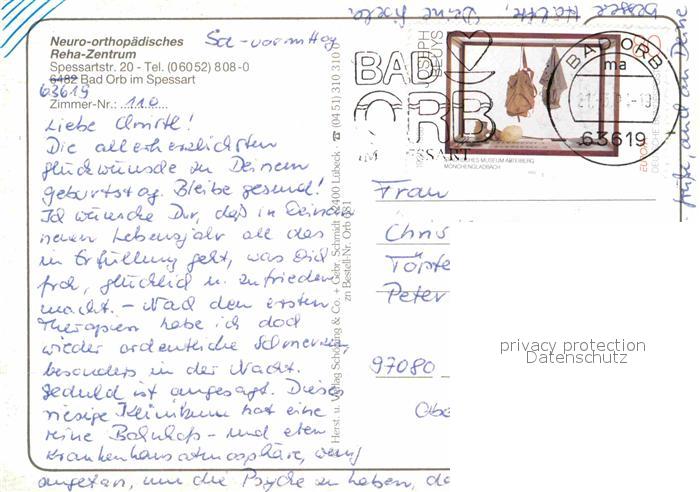 besser Hälfte, Deine Gisela.
Neuro-orthopädisches
Reha-Zentrum
Spessartstr. 20 - Tel. (06052) 808-0
6482 Bad Orb im Spessart
63619
Zimmer-Nr.: 110
Sa-vormittag
Liebe Christl!
Die allerherzlichsten
Glückwünsche zu Deinem
Geburtstag. Bleibe gesund!
Ich wünsche Dir, daß in Deinem
neuen Lebensjahr all das
in Erfüllung geht, was Dich
froh, glücklich u. zufrieden
macht. - Nach den ersten
Therapien habe ich doch
wieder ordentliche Schmerzen,
besonders in der Nacht.
Geduld ist angesagt. Dieses
riesige Klinikum hat eine
reine Bahnhofs- und eben
Krankenhausatmosphäre, wenig
angetan, um die Psyche zu heben, da
Herst. u. Verlag Schöning & Co. + Gebr. Schmidt · 23400 Lübeck · ☎ (0451) 310 310
zu Bestell-Nr. Orb 631
BAD
ORB
IM SPESSART
JOSEPH
BEUYS
STÄDTISCHES MUSEUM ABTEIBERG
MÖNCHENGLADBACH
BAD ORB
ma
63619
Grüße auch an Deine
Frau
Chris
Peter
97080
privacy protection
Datenschutz